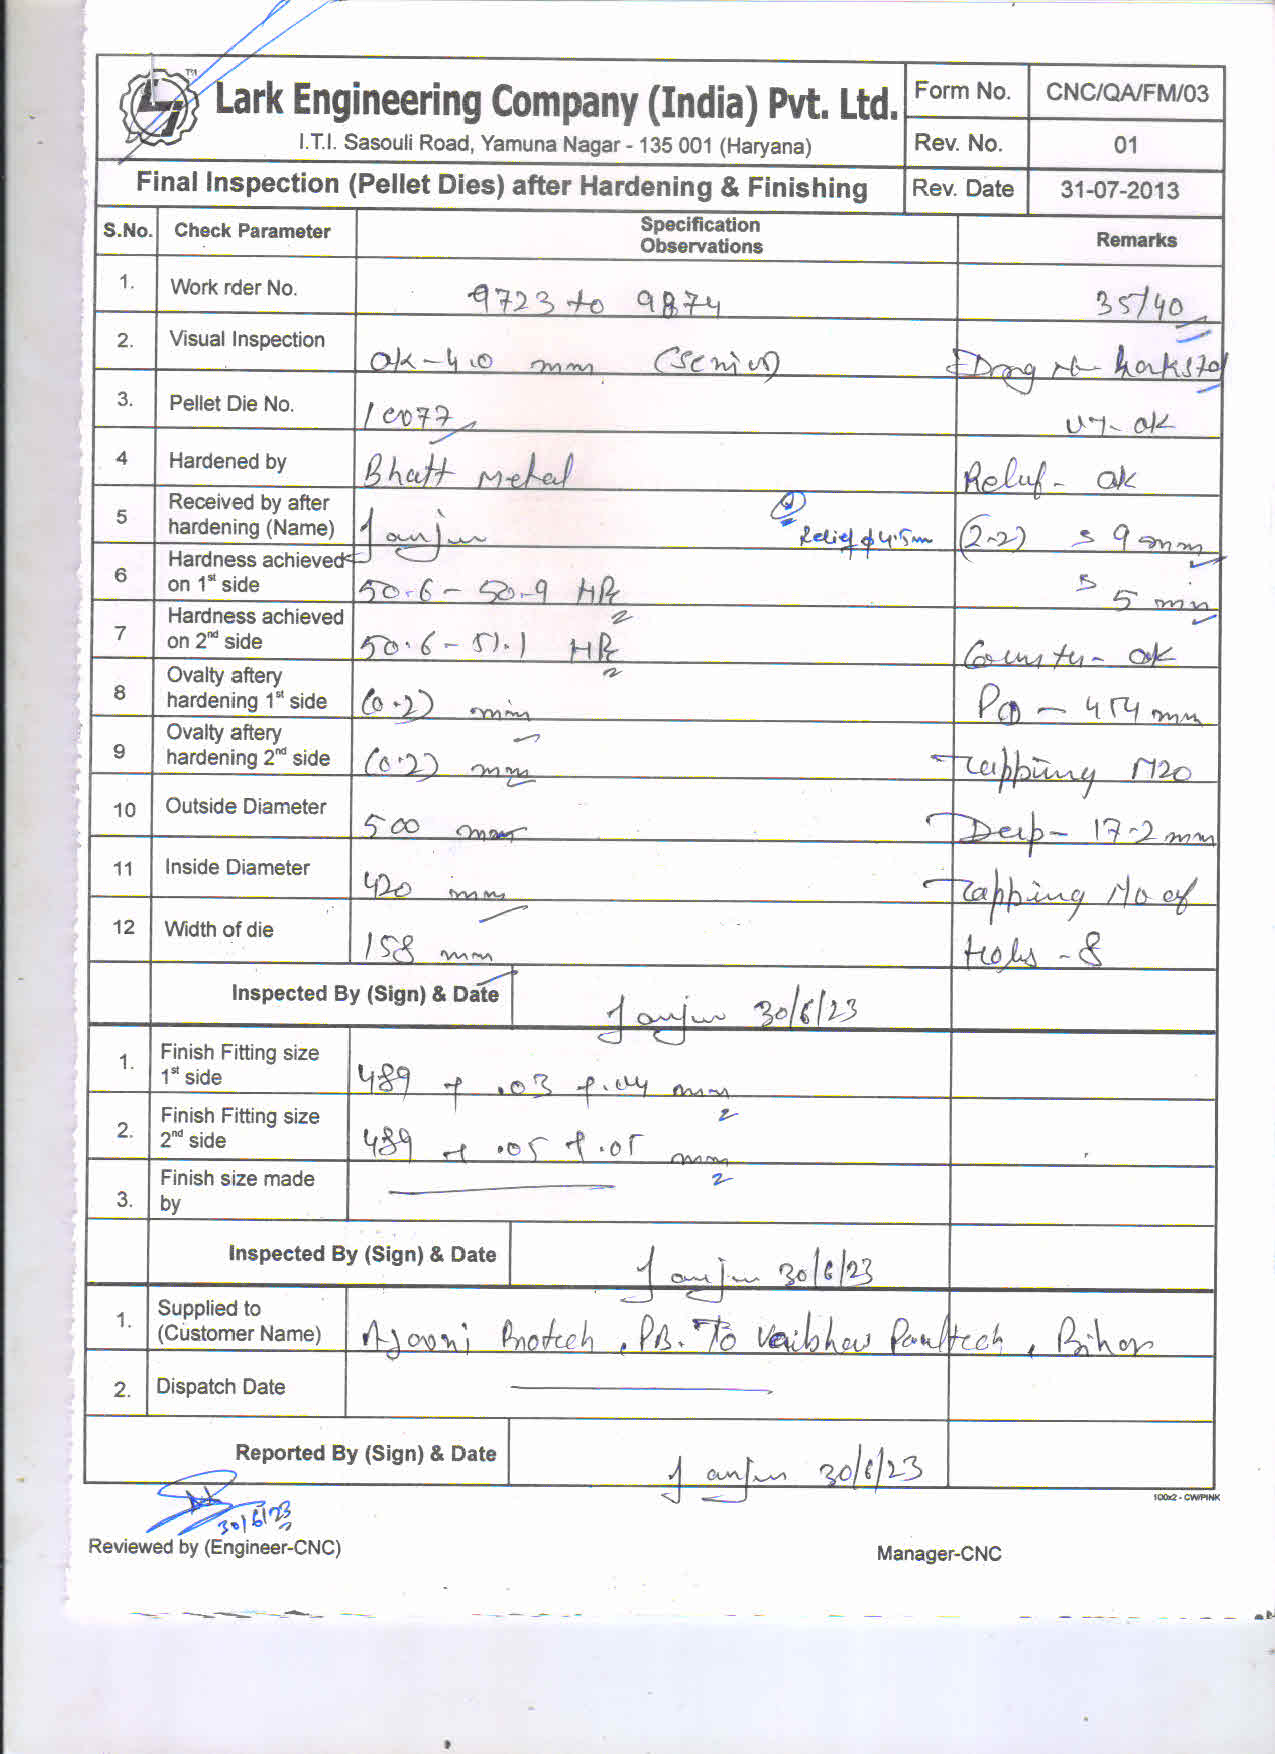 Lark Engineering Company (India) Pvt. Ltd.
I.T.I. Sasouli Road, Yamuna Nagar - 135 001 (Haryana)
Form No. CNC/QA/FM/03
Rev. No. 01
Final Inspection (Pellet Dies) after Hardening & Finishing Rev. Date 31-07-2013
S.No. Check Parameter Specification Observations Remarks
1. Work rder No. 9723 to 9874 35/40
2. Visual Inspection OK - 4.0 mm
3. Pellet Die No. 10077 OK
4 Hardened by Bhatt Metal Relief - OK
5 Received by after hardening (Name) Relief φ 4.5 mm (2-2) 9 mm
6 Hardness achieved on 1st side 50.6 - 50.9 HRc 5 mm
7 Hardness achieved on 2nd side 50.6 - 51.1 HRc Counter - OK
8 Ovalty aftery hardening 1st side (0.2) mm 454 mm
9 Ovalty aftery hardening 2nd side (0.2) mm Tapping M20
10 Outside Diameter 500 mm Deep - 17-2 mm
11 Inside Diameter 420 mm Tapping No of
12 Width of die 158 mm Holes - 8
Inspected By (Sign) & Date 30/6/23
1. Finish Fitting size 1st side 489 + .03 + .04 mm
2. Finish Fitting size 2nd side 489 + .05 + .05 mm
3. Finish size made by
Inspected By (Sign) & Date 30/6/23
1. Supplied to (Customer Name) Ajooni Biotech, PB. To Vaibhav Paultech, Bihar
2. Dispatch Date
Reported By (Sign) & Date 30/6/23
100x2 - CW/PINK
30/6/23
Reviewed by (Engineer-CNC) Manager-CNC